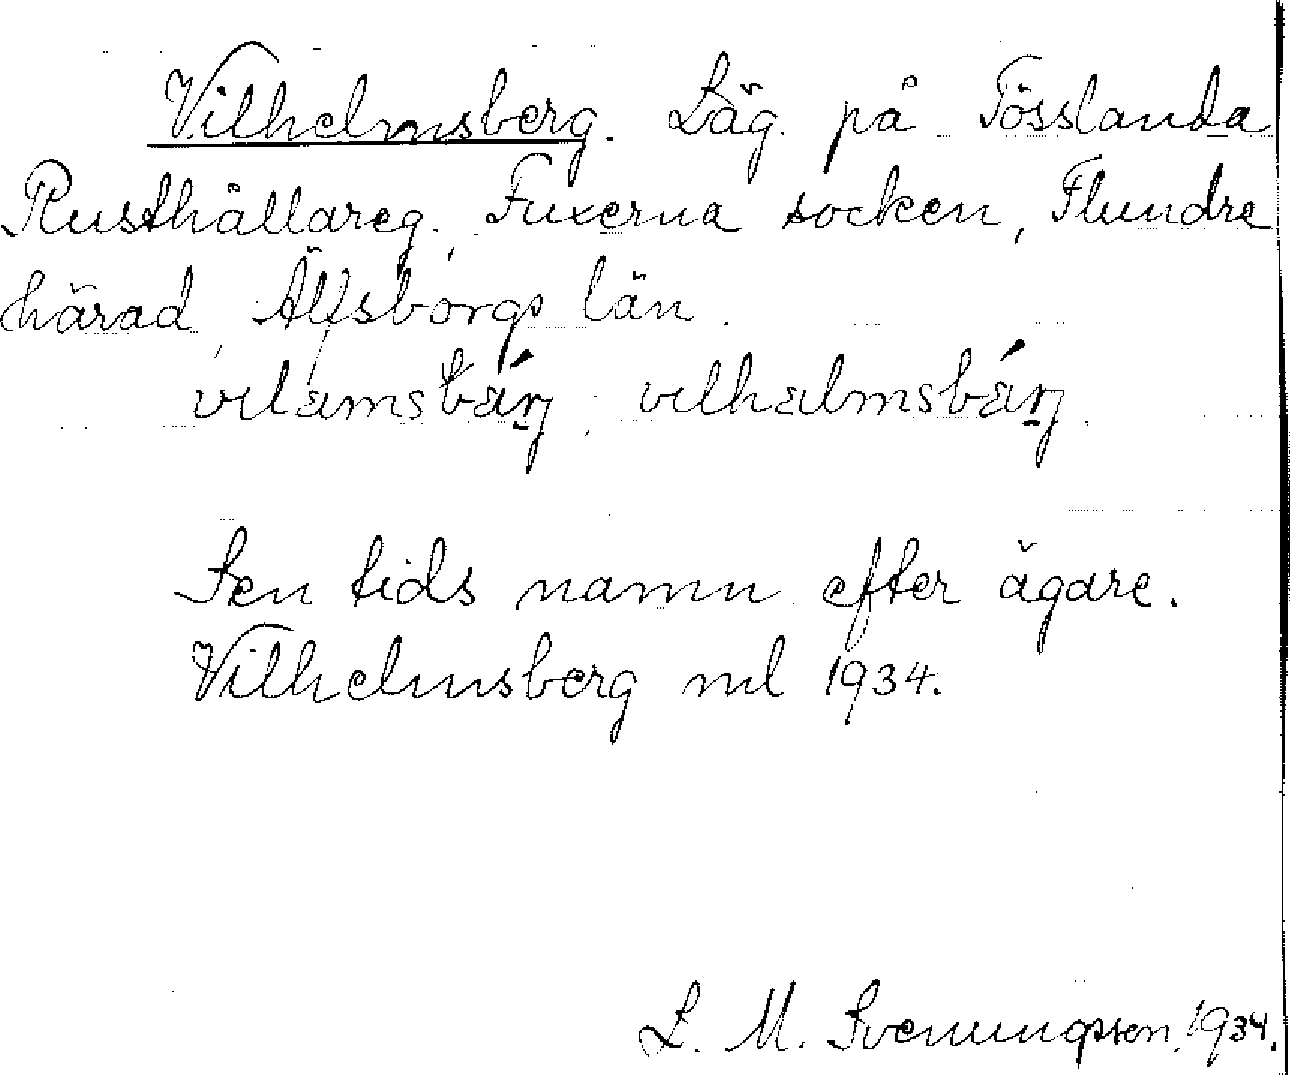 Vilhelmsberg. Läg. på Tösslanda
Rusthållareg., Fuxerna socken, Flundre
härad, Älfsborgs län.
vilamsbárj, vilhalmsbárj.
Sen tids namn efter ägare.
Vilhelmsberg ml 1934.
L. M. Svenungsson. 1934.